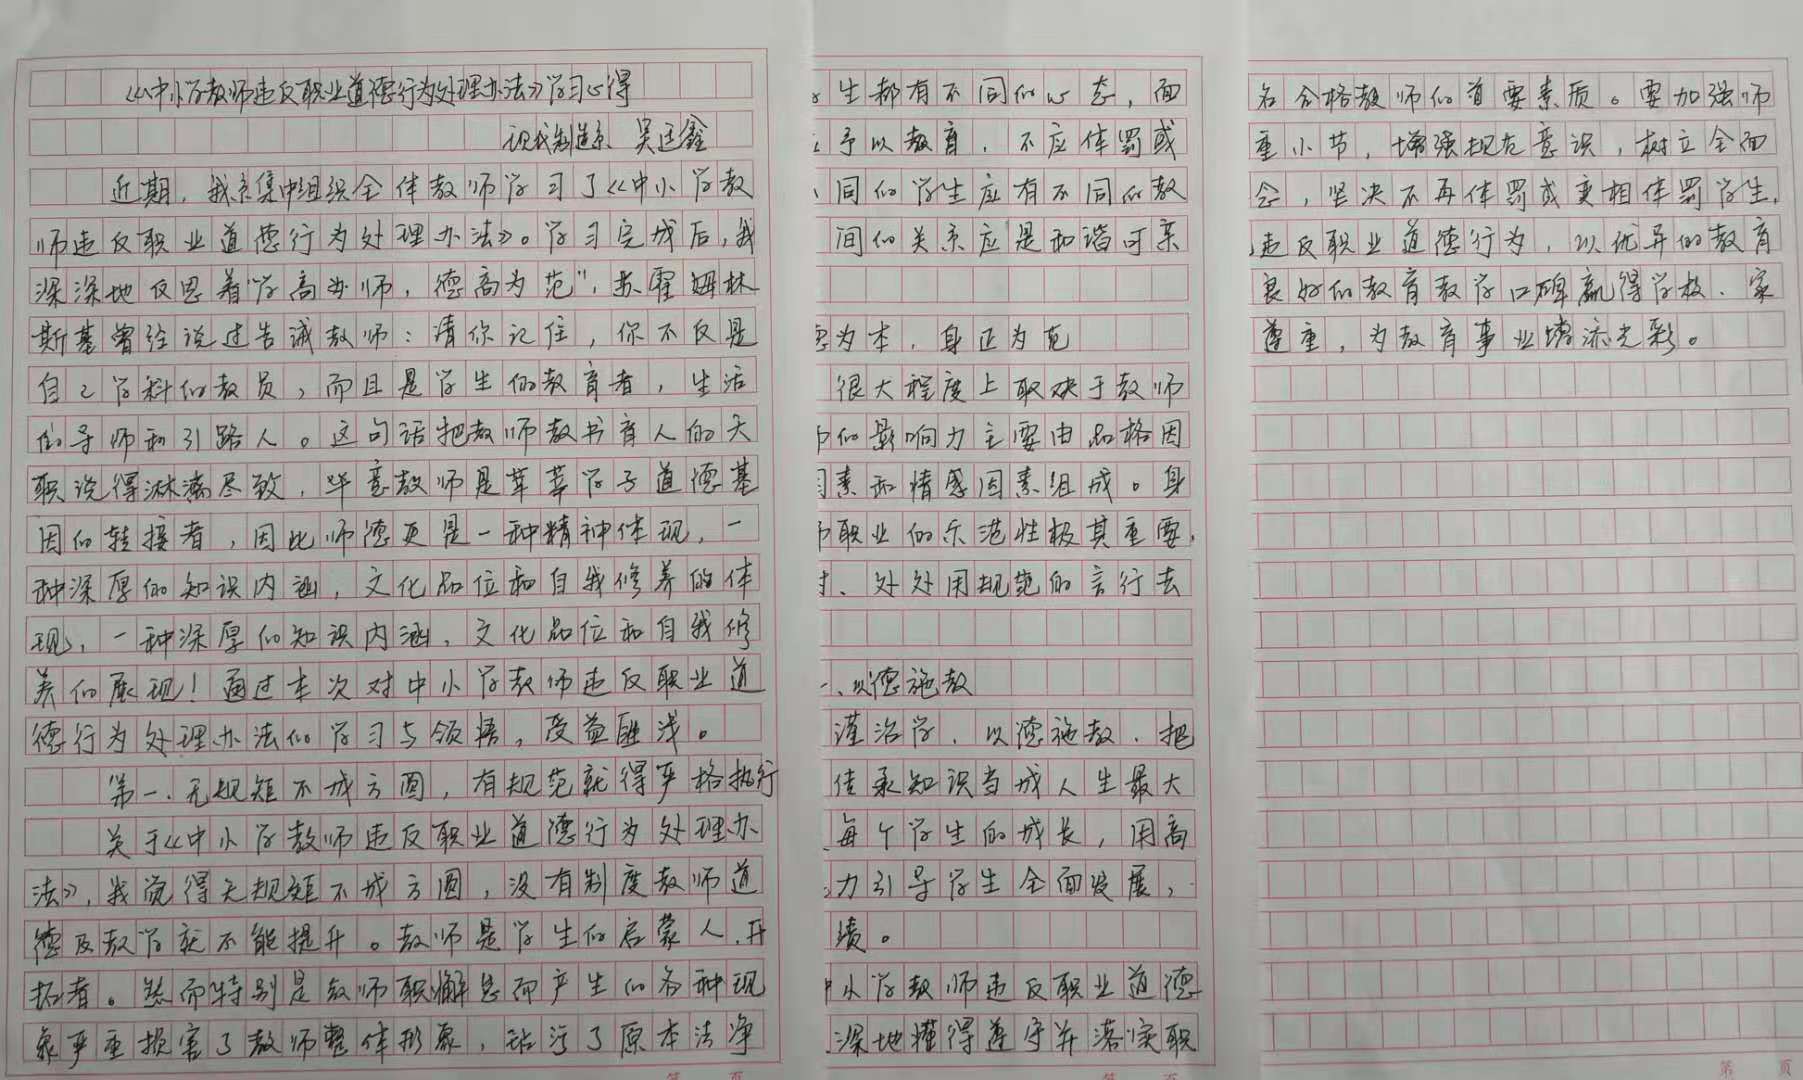 《中小学教师违反职业道德行为处理办法》学习心得
现代制造系 吴廷鑫
近期，我系集中组织全体教师学习了《中小学教
师违反职业道德行为处理办法》。学习完成后，我
深深地反思着“学高为师，德高为范”，苏霍姆林
斯基曾经说过告诫教师：请你记住，你不仅是
自己学科的教员，而且是学生的教育者，生活
的导师和引路人。这句话把教师教书育人的天
职说得淋漓尽致，毕竟教师是莘莘学子道德基
因的转接者，因此师德更是一种精神体现，一
种深厚的知识内涵，文化品位和自我修养的体
现，一种深厚的知识内涵，文化品位和自我修
养的展现！通过本次对中小学教师违反职业道
德行为处理办法的学习与领悟，受益匪浅。
第一、无规矩不成方圆，有规范就得严格执行
关于《中小学教师违反职业道德行为处理办
法》，我觉得无规矩不成方圆，没有制度教师道
德及教学就不能提升。教师是学生的启蒙人，开
拓者。然而特别是教师职懈怠而产生的各种现
象严重损害了教师整体形象，玷污了原本洁净
生都有不同的心态，面
予以教育，不应体罚或
同的学生应有不同的教
间的关系应是和谐可亲
为本，身正为范
很大程度上取决于教师
的影响力主要由品格因
素和情感因素组成。身
职业的示范性极其重要，
、处处用规范的言行去
、以德施教
谨治学，以德施教，把
传承知识当成人生最大
每个学生的成长，用高
力引导学生全面发展，
绩。
小学教师违反职业道德
深地懂得遵守并落实职
名合格教师的首要素质。要加强师
重小节，增强规范意识，树立全面
念，坚决不再体罚或变相体罚学生，
违反职业道德行为，以优异的教育
良好的教育教学口碑赢得学校、家
尊重，为教育事业增添光彩。
第 页
第 页
第 页